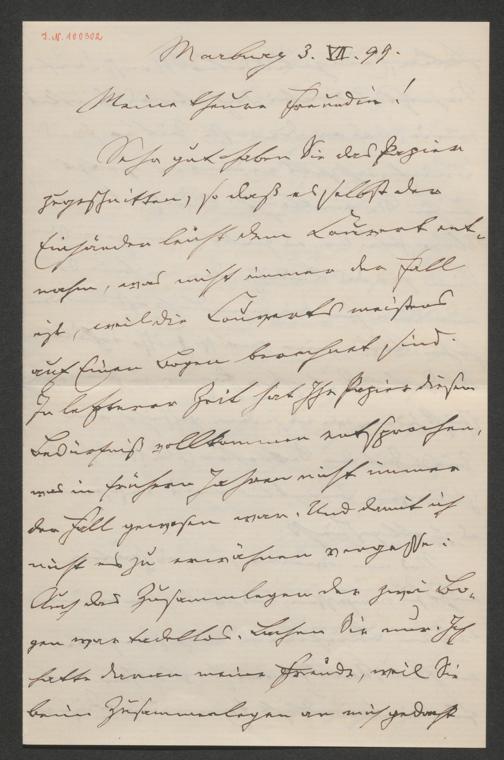 I.N. 100302
Marburg 3. VII. 99.
Meine theure Freundin!
Sehr gut haben Sie das Papier
zugeschnitten, so daß es selbst der
Einhänder leicht dem Couvert ent-
nahm, was nicht immer der Fall
ist, weil die Couverts meistens
auf Einen Bogen berechnet sind.
In letzterer Zeit hat Ihr Papier diesem
Bedürfniß vollkommen entsprochen,
was in frühern Jahren nicht immer
der Fall gewesen war. Und damit ich
nicht es zu erwähnen vergesse:
Auch das Zusammlegen der zwei Bo-
gen war tadellos. Lachen Sie nur. Ich
hatte daran meine Freude, weil Sie
beim Zusammenlegen an mich gedacht